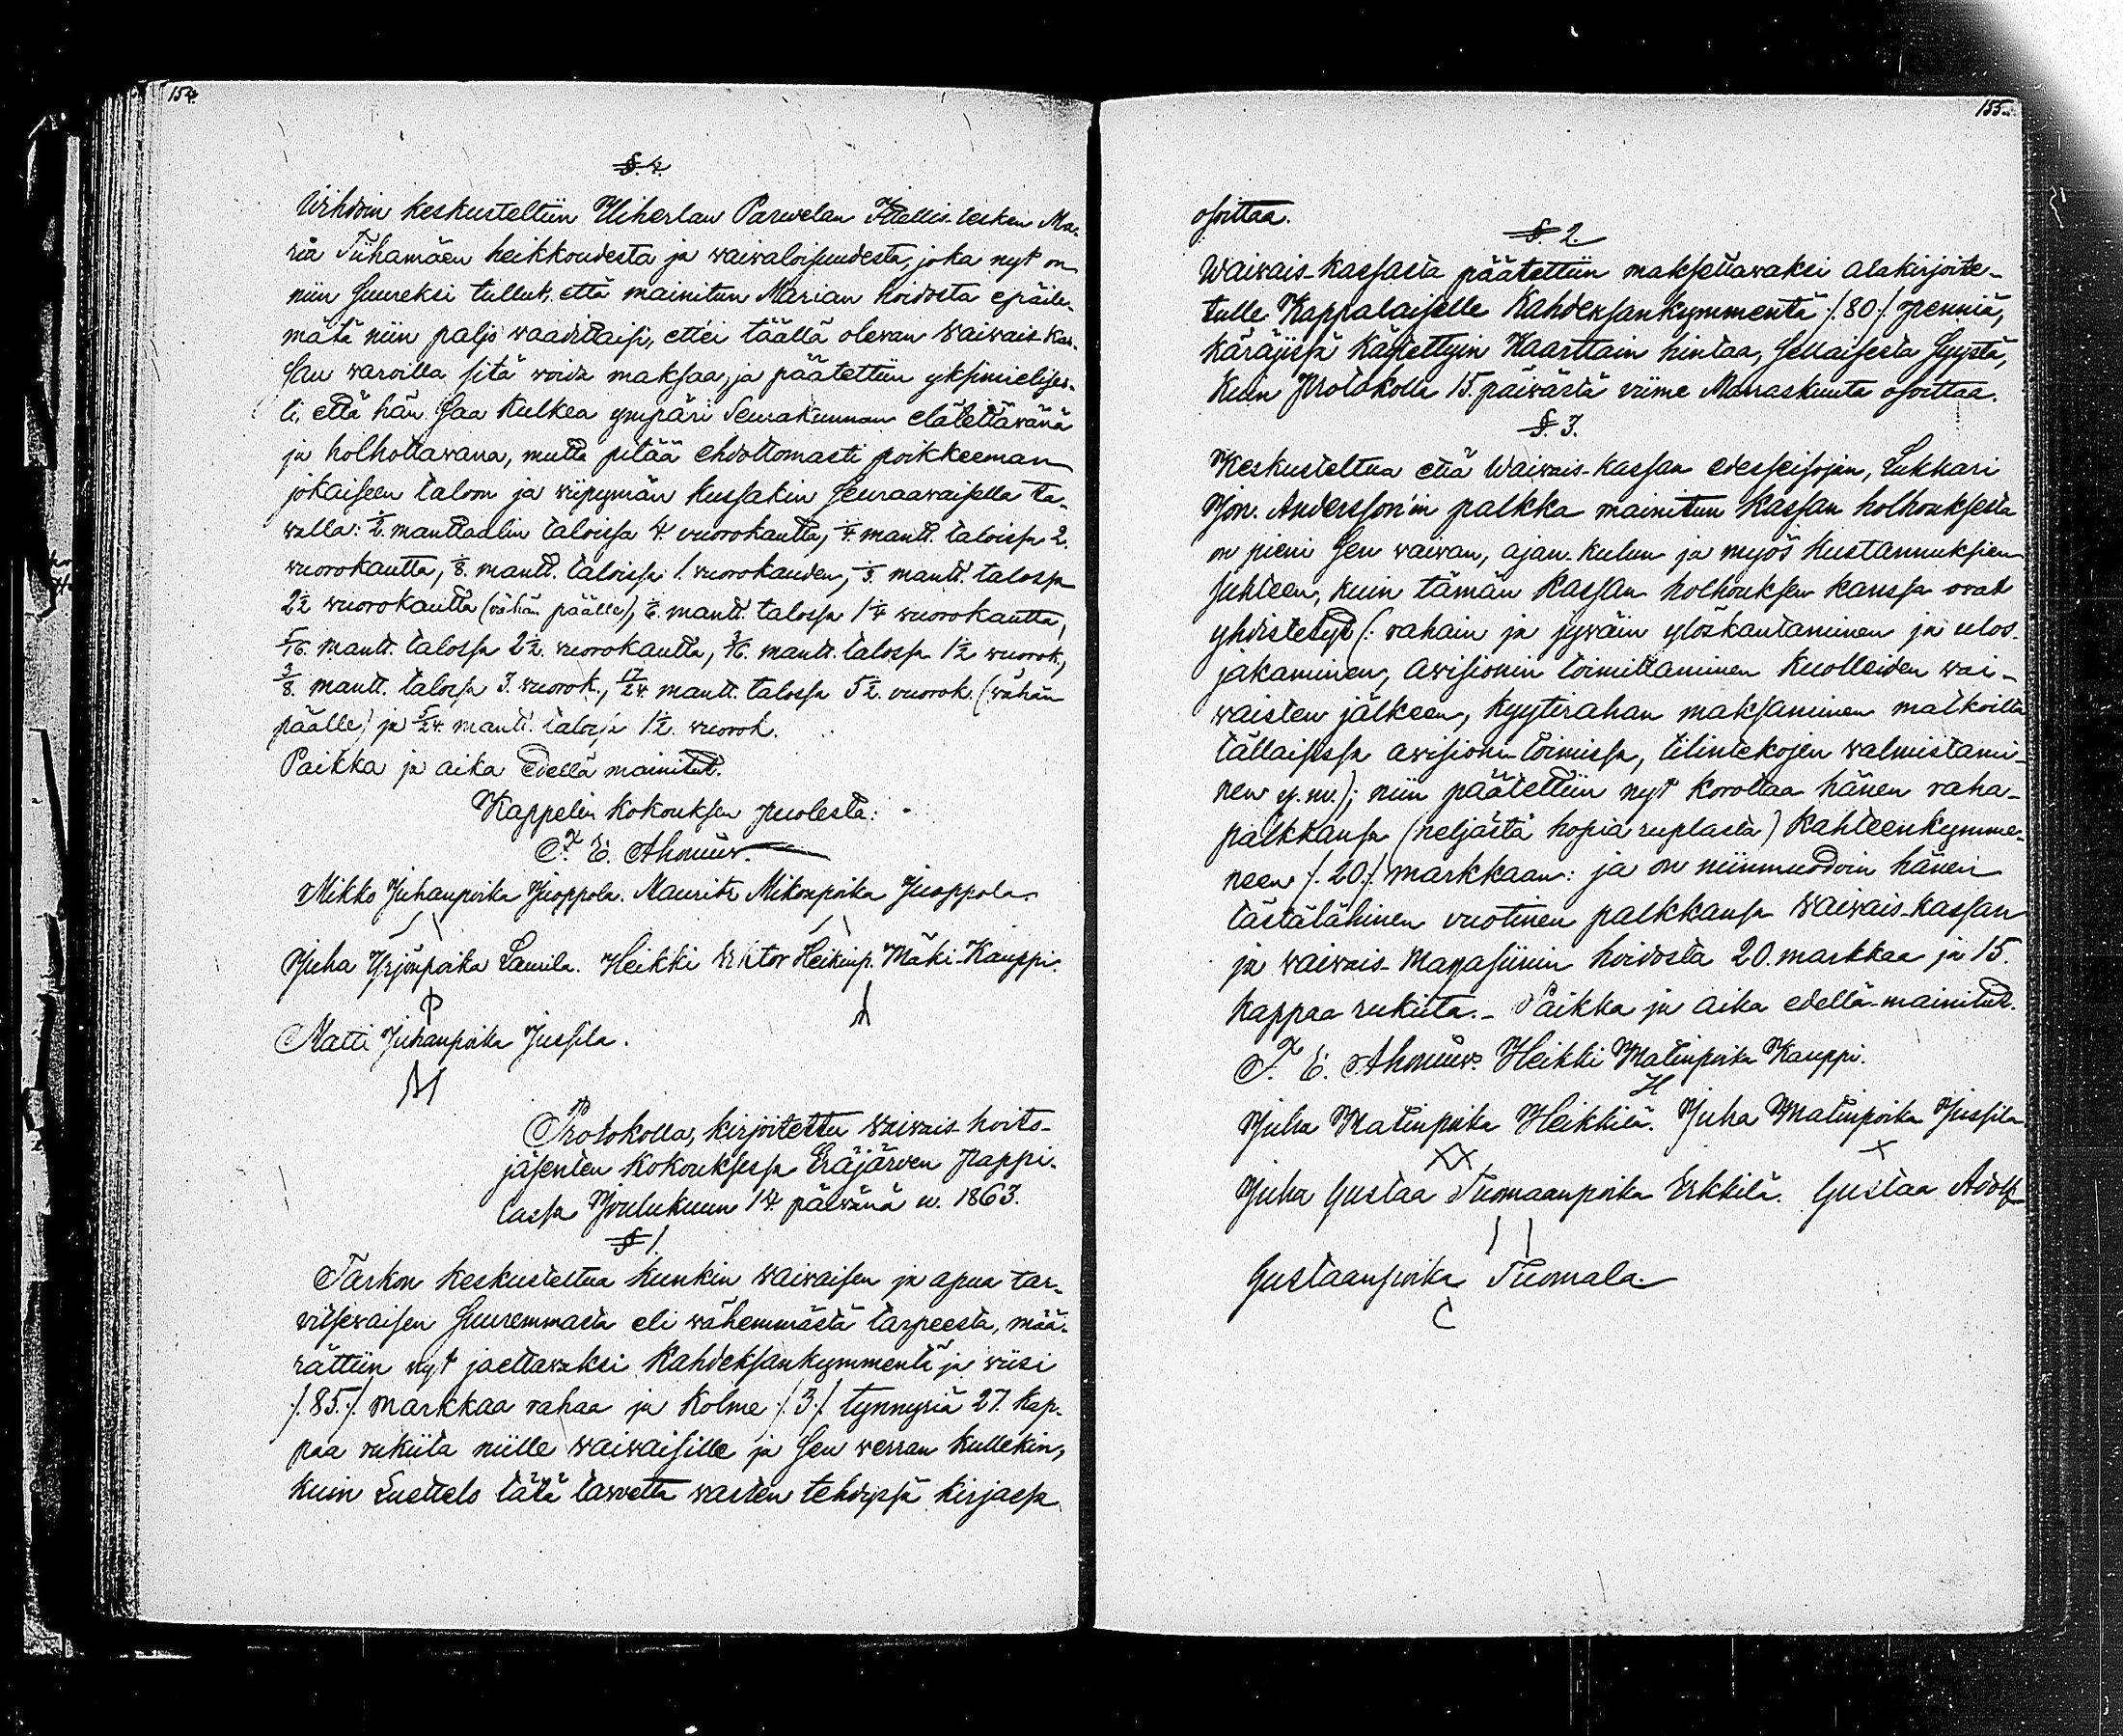 154.
§. 4.
Wihdoin keskusteltiin Uiherlan Parwelan Itellis-lesken Ma-
ria Tiihamäen heikkoudesta ja waiwaloisuudesta, joka nyt on
niin suureksi tullut, että mainitun Marian hoidosta epäile-
mätä niin paljo waadittaisi, ettei täällä olewan Waiwais-kas-
san waroilla sitä woida maksaa, ja päätettiin yksimielises-
ti, että hän saa kulkea ympäri Seurakunnan elätettäwänä
ja holhottawana, mutta pitää ehdottomasti poikkeeman
jokaiseen taloon ja wiipymän kussakin seuraawaisella ta-
walla: ½. manttaalin taloissa 4 vuorokautta, ¼ mantt. taloissa 2.
vuorokautta, ⅛. mantt. taloissa 1. vuorokauden, ⅓. mantt. talossa
2½ wuorokautta (vähän päälle), ⅙. mantt. talossa 1¼ wuorokautta,
5/16. mantt. talossa 2½. vuorokautta, 3/16. mantt. talossa 1½ wuorok.,
3/8. mantt. talossa 3. wuorok., 17/24 mantt. talossa 5½. vuorok. (wähän
päälle) ja 5/24. mantt. talossa 1½. wuorok.
Paikka ja aika edellä mainitut.
Kappelin kokouksen puolesta:
F. E. Ahonius.
Mikko Juhanpoika Juoppola. Maurits Mikonpoika Juoppola.
Juha Yrjönpoika Laurila. Heikki Wiktor Heikinp. Mäki-Kauppi.
Matti Juhanpoika Jussila.
Protokolla, kirjoitettu Waiwais-hoito-
jäsenten kokouksessa Eräjärven Pappi-
lassa Joulukuun 14. päiwänä w. 1863.
§ 1.
Tarkon keskusteltua kunkin waiwaisen ja apua tar-
vitsewaisen suuremmasta eli wähemmästä tarpeesta, mää-
rättiin nyt jaettawaksi Kahdeksankymmentä ja wiisi
/. 85./ markkaa rahaa ja Kolme /. 3 /. tynnyriä 27. kap-
paa rukiita niille waiwaisille ja sen werran kullekin,
kuin Luettelo tätä tarvetta warten tehdyssä kirjassa
155.
osoittaa.
§. 2.
Waiwais-kassasta päätettiin maksettawaksi alakirjoite-
tulle Kappalaiselle Kahdeksankymmentä /. 80 /. penniä,
käräjissä käytettyin Kaarttain hintaa, sellaisesta syystä,
kuin Protokolla 15. päivästä viime Marraskuuta osoittaa.
§. 3.
Keskusteltua että Waiwais-kassan edesseisojan, Lukkari
Joh. Andersson'in palkka mainitun Kassan holhouksesta
on pieni sen waiwan, ajan-kulun ja myös kustannuksien
suhteen, kuin tämän Kassan holhouksen kanssa ovat
yhdistetyt (: rahain ja jywäin ylöskantaminen ja ulos-
jakaminen, awisionin toimittaminen kuolleiden wai-
waisten jälkeen, kyytirahan maksaminen matkoilta
tällaisissa awisioni-toimissa, tilintekojen walmistami-
nen y. m.); niin päätettiin nyt korottaa hänen raha-
palkkansa (neljästä hopia ruplasta) Kahteenkymme-
neen /. 20./. markkaan: ja on niinmuodoin hänen
tästälähinen vuotinen palkkansa Waiwais-kassan
ja waiwais-Magasiinin hoidosta 20. markkaa ja 15.
kappaa rukiita. - Paikka ja aika edellä-mainitut.
F. E. Ahonius. Heikki Matinpoika Kauppi.
H
Juha Matinpoika Heikkilä. Juha Matinpoika Jussila
XX X
Juha Gustaa Tuomaanpoika Erkkilä. Gustaa Adolf
Gustaanpoika Tuomala.